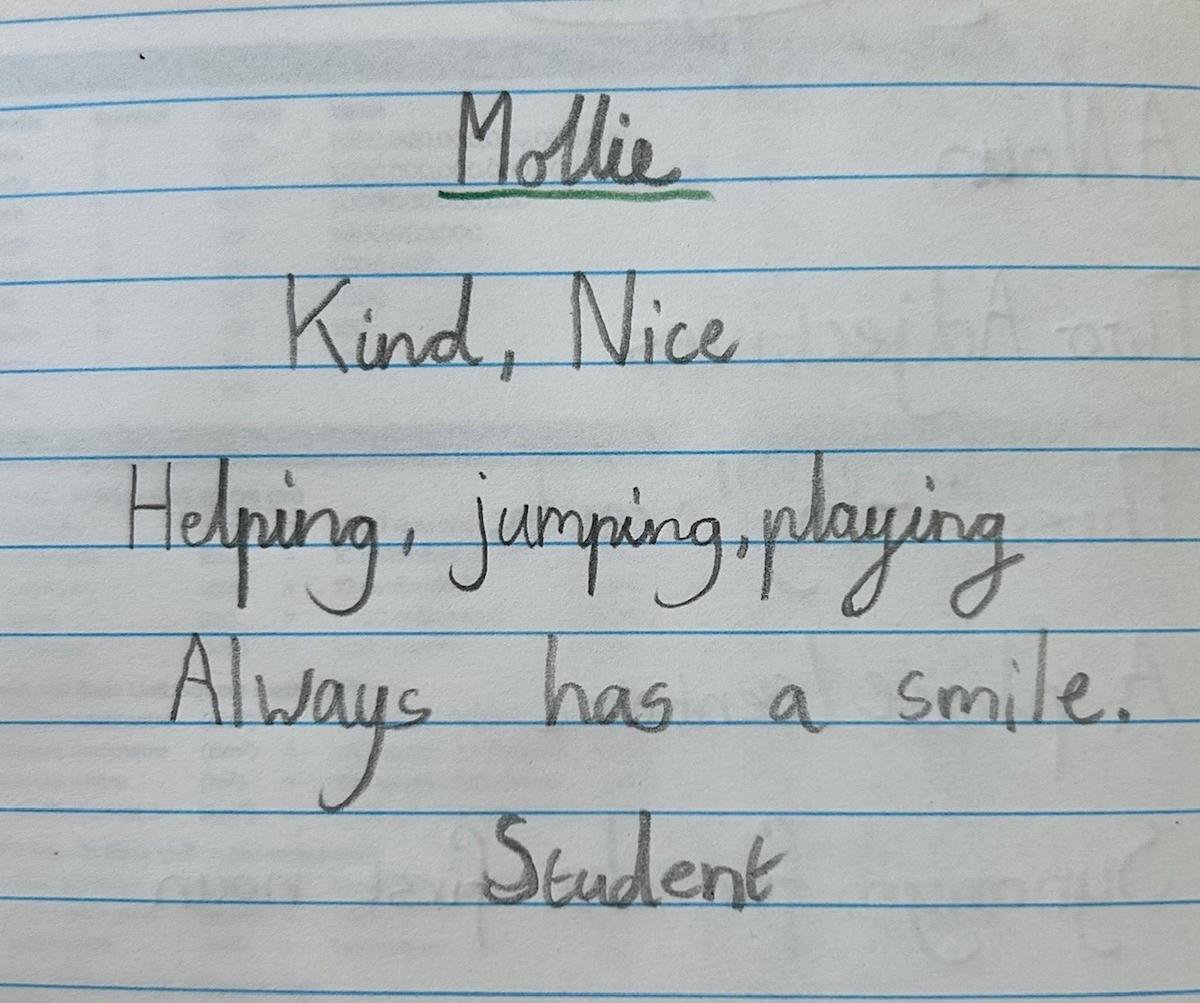 Mollie
Kind, Nice
Helping, jumping, playing
Always has a smile.
Student